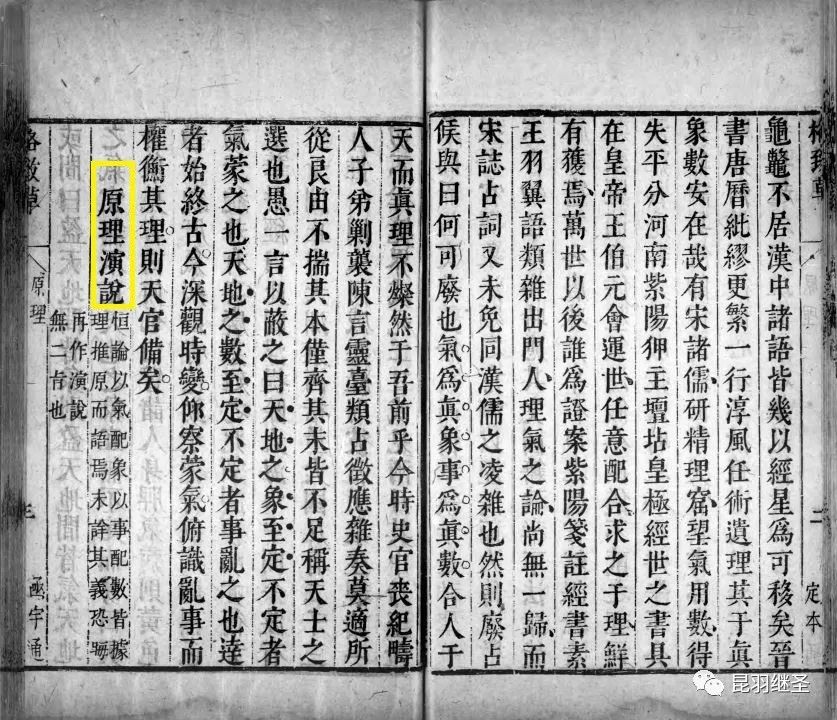 格致草
二
定本
龜鼈不居漢中諸語皆幾以經星爲可移矣晉
書唐曆紕繆更繁一行淳風任術遺理其于眞
象數安在哉有宋諸儒研精理窟望氣用數得
失平分河南紫陽狎主壇坫皇極經世之書具
在皇帝王伯元會運世任意配合求之于理鮮
有獲焉萬世以後誰爲證案紫陽箋註經書素
王羽翼語類雜出門人理氣之論尚無一歸而
宋誌占詞又未免同漢儒之凌雜也然則廢占
候與曰何可廢也氣爲眞象事爲眞數合人于
天而眞理不燦然于吾前乎今時史官喪紀疇
人子弟剿襲陳言靈臺類占徵應雜奏莫適所
從良由不揣其本僅齊其末皆不足稱天士之
選也愚一言以蔽之曰天地之象至定不定者
氣蒙之也天地之數至定不定者事亂之也達
者始終古今深觀時變仰察蒙氣俯識亂事而
權衡其理則天官備矣
原理演說
恒論以氣配象以事配數皆據
理推原而語焉未詮其義恐晦
再作演說
無二旨也
格致草
原理
三
函宇通
昆羽继圣